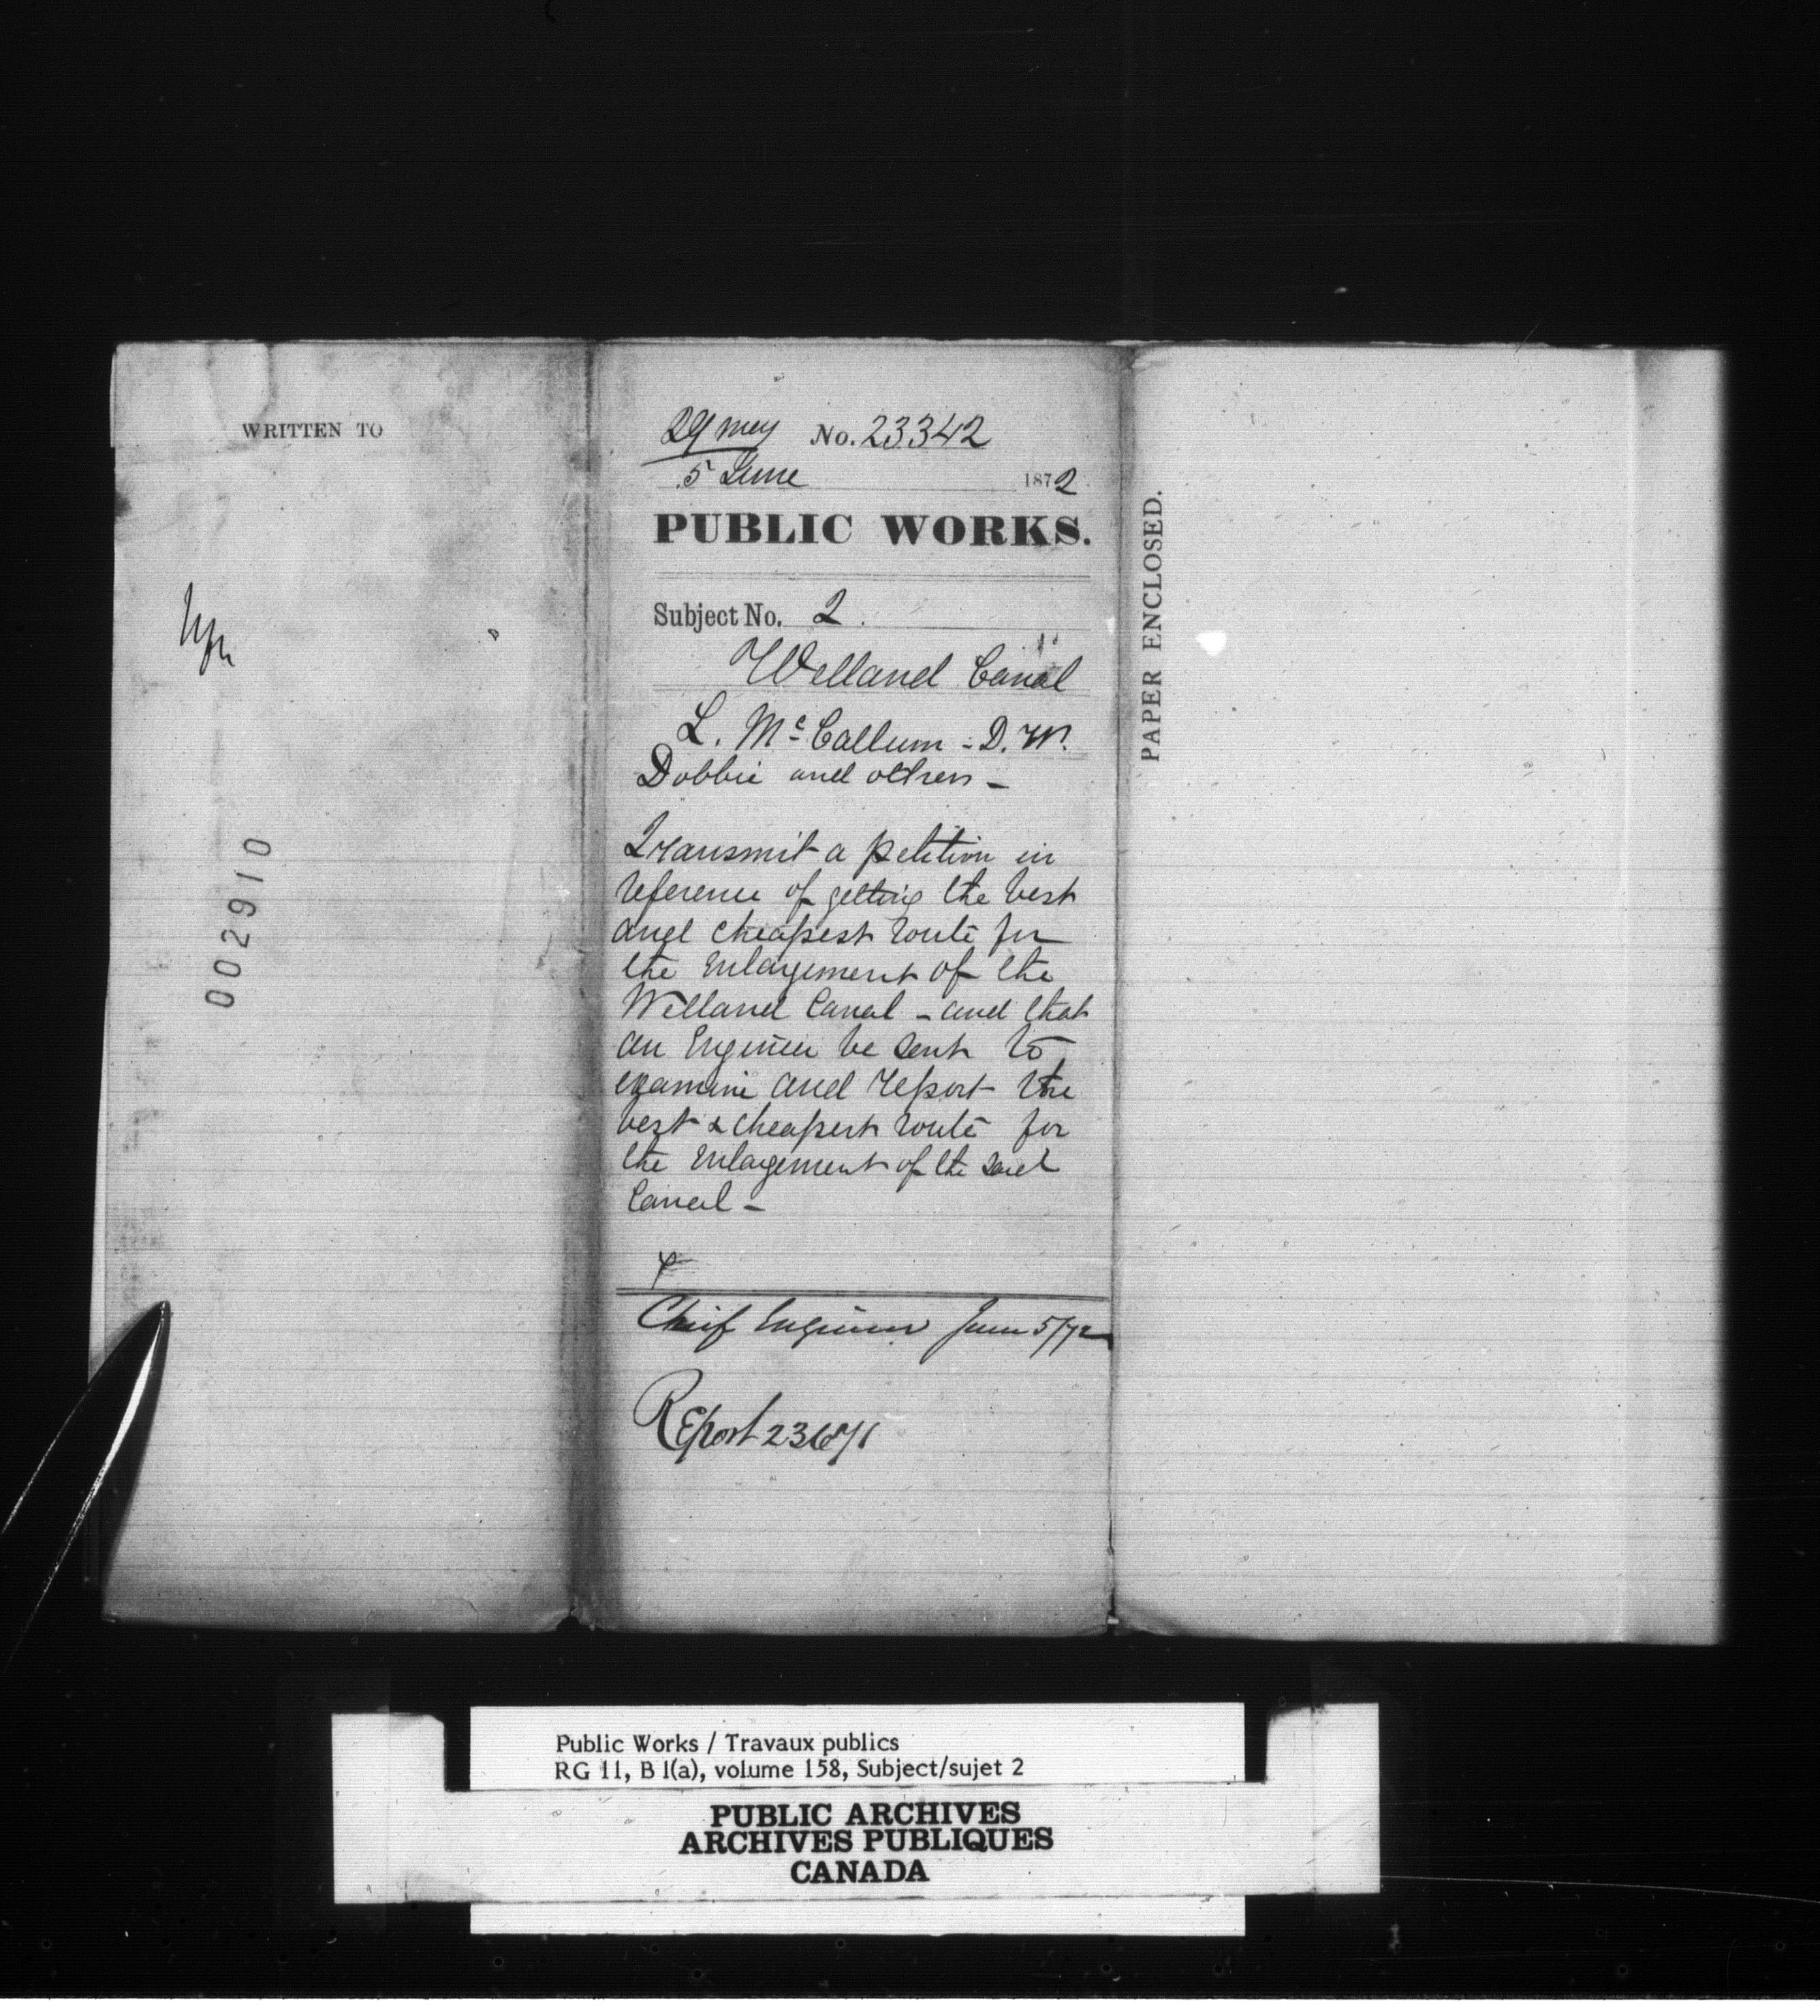 WRITTEN TO
002910
29 May No. 23342
5 June 1872
PUBLIC WORKS.
Subject No. 2.
Welland Canal
L. McCallum - D. W.
Dobbie and others -
Transmit a petition in
reference of getting the best
and cheapest route for
the Enlargement of the
Welland Canal - and that
an Engineer be sent to
examine and report the
best & cheapest route for
the Enlargement of the said
Canal -
Chief Engineer June 5/72
Report
PAPER ENCLOSED.
Public Works / Travaux publics
RG 11, B 1(a), volume 158, Subject/sujet 2
PUBLIC ARCHIVES
ARCHIVES PUBLIQUES
CANADA